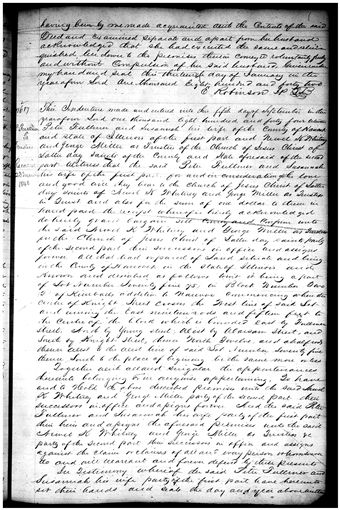 having been by me made acquainted with the Contents of the said
Deed and examined separate and apart from her husband
acknowledged that she had executed the same and relin-
quished her dower to the premises therein conveyed voluntarily freely
and without Compulsion of her said husband Given under
my hand and seal this thirteenth day of January in the
year of our Lord one thousand eight hundred and forty four
E. Robinson
This Indenture made and entered into this fifth day of September in the
year of our Lord one thousand eight hundred and forty four between
Peter Fullmer and Susannah his wife of the County of Hancock
and State of Illinois of the first part and Newel K Whitney
and George Miller as Trustees of the Church of Jesus Christ of
Latter day saints of the County and State aforesaid of the second
part witness that the said Peter Fullmer and Susannah
his wife of the first part for and in consideration of the love
and good will they bear to the Church of Jesus Christ of Latter
day saints Newel K Whitney and George Miller as Trustees
in Trust and also for the sum of one dollar to them in
hand paid the receipt whereof is hereby acknowledged
do hereby grant bargain sell Convey and Confirm unto
the said Newel K Whitney and George Miller as Trustees
for the Church of Jesus Christ of Latter day saints party
of the second part their successors in office and assigns
forever All that tract or parcel of Land situate and being
in the County of Hancock in the State of Illinois and
known and described as follows to wit being a part
of Lot Number Seventy five 75 in Block Number Two
2 of Kimballs addition to Nauvoo Commencing where the
center of Knight Street crosses the West line of said Lot
and running thence East nineteen rods and fifteen feet to
the Center of the block which is bounded East by
Street North by Young Street West by Wasson Street and
South by Knight Street thence North twelve and a half rods
thence West to the West line of said Lot Number Seventy five
thence South to the place of beginning be the same more or less
Together with all and singular the appurtenances
thereunto belonging or in anywise appertaining To have
and to Hold the above described premises unto the said Newel
K Whitney and George Miller party of the second part their
successors in office and assigns forever And the said Peter
Fullmer and Susannah his wife party of the first part
their heirs and assigns the aforesaid premises unto the said
Newel K Whitney and George Miller as Trustees &
party of the second part their successors in office and assigns
against the claim or claims of all and every person whomsoever
do and will warrant and forever defend by these presents
In Testimony whereof the said Peter Fullmer and
Susannah his wife party of the first part have hereunto
set their hands and seals the day and year above written